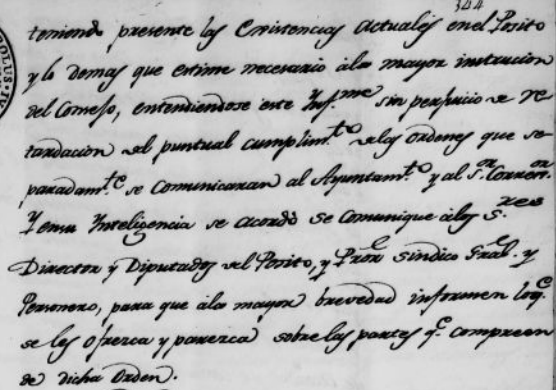 344
teniendo presente las Existencias actuales en el Posito
y lo demas que estime necesario ála mayor instrucion
del Consejo, entendiendose este Ynf.me sin perjuicio e re
tardacion del puntual cumplim.to delas ordenes que se
paradam.te se comunicaran al Ayuntam.to y al s.or Corregr.or
Y en su Ynteligencia se acordó se comunique álos s.res
Director y Diputados del Posito, y Pror Sindico Gral. y
Personero, para que ála mayor brevedad informen loq.e
se les ofrezca y parezca sobre las partes q.e compreen
de dicha Orden.